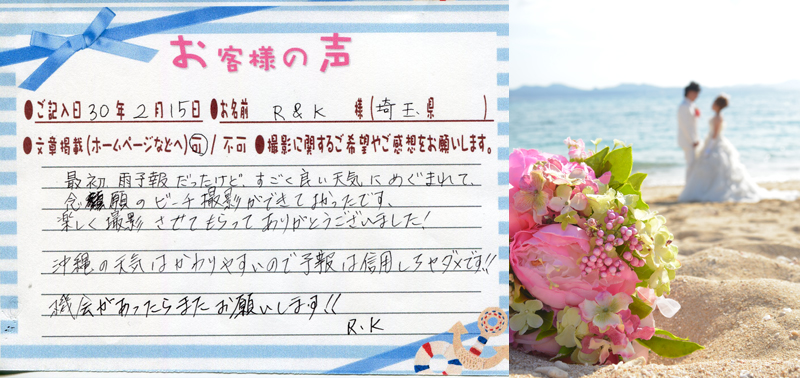 お客様の声
●ご記入日 30年 2月 15日 ●お名前 R & K 様 (埼玉県 )
●文章掲載(ホームページなどへ) 可 / 不可 ●撮影に関するご希望やご感想をお願いします。
最初、雨予報だったけど、すごく良い天気にめぐまれて、
念願のビーチ撮影ができてよかったです、
楽しく撮影させてもらってありがとうございました!
沖縄の天気はかわりやすいので予報は信用しちゃダメです!!
機会があったらまたお願いします!!
R.K